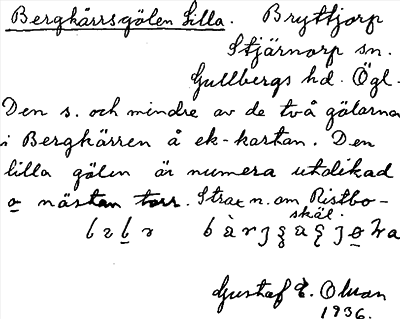 Bergkärrsgölen Lilla. Bryttjorp
Stjärnorp sn.
Gullbergs hd. Ögl.
Den s. och mindre av de två gölarna
i Bergkärren å ek-kartan. Den
lilla gölen är numera utdikad
o nästan torr. Strax n. om Ristbo-
skäl.
Gustaf E. Olsson
1936.